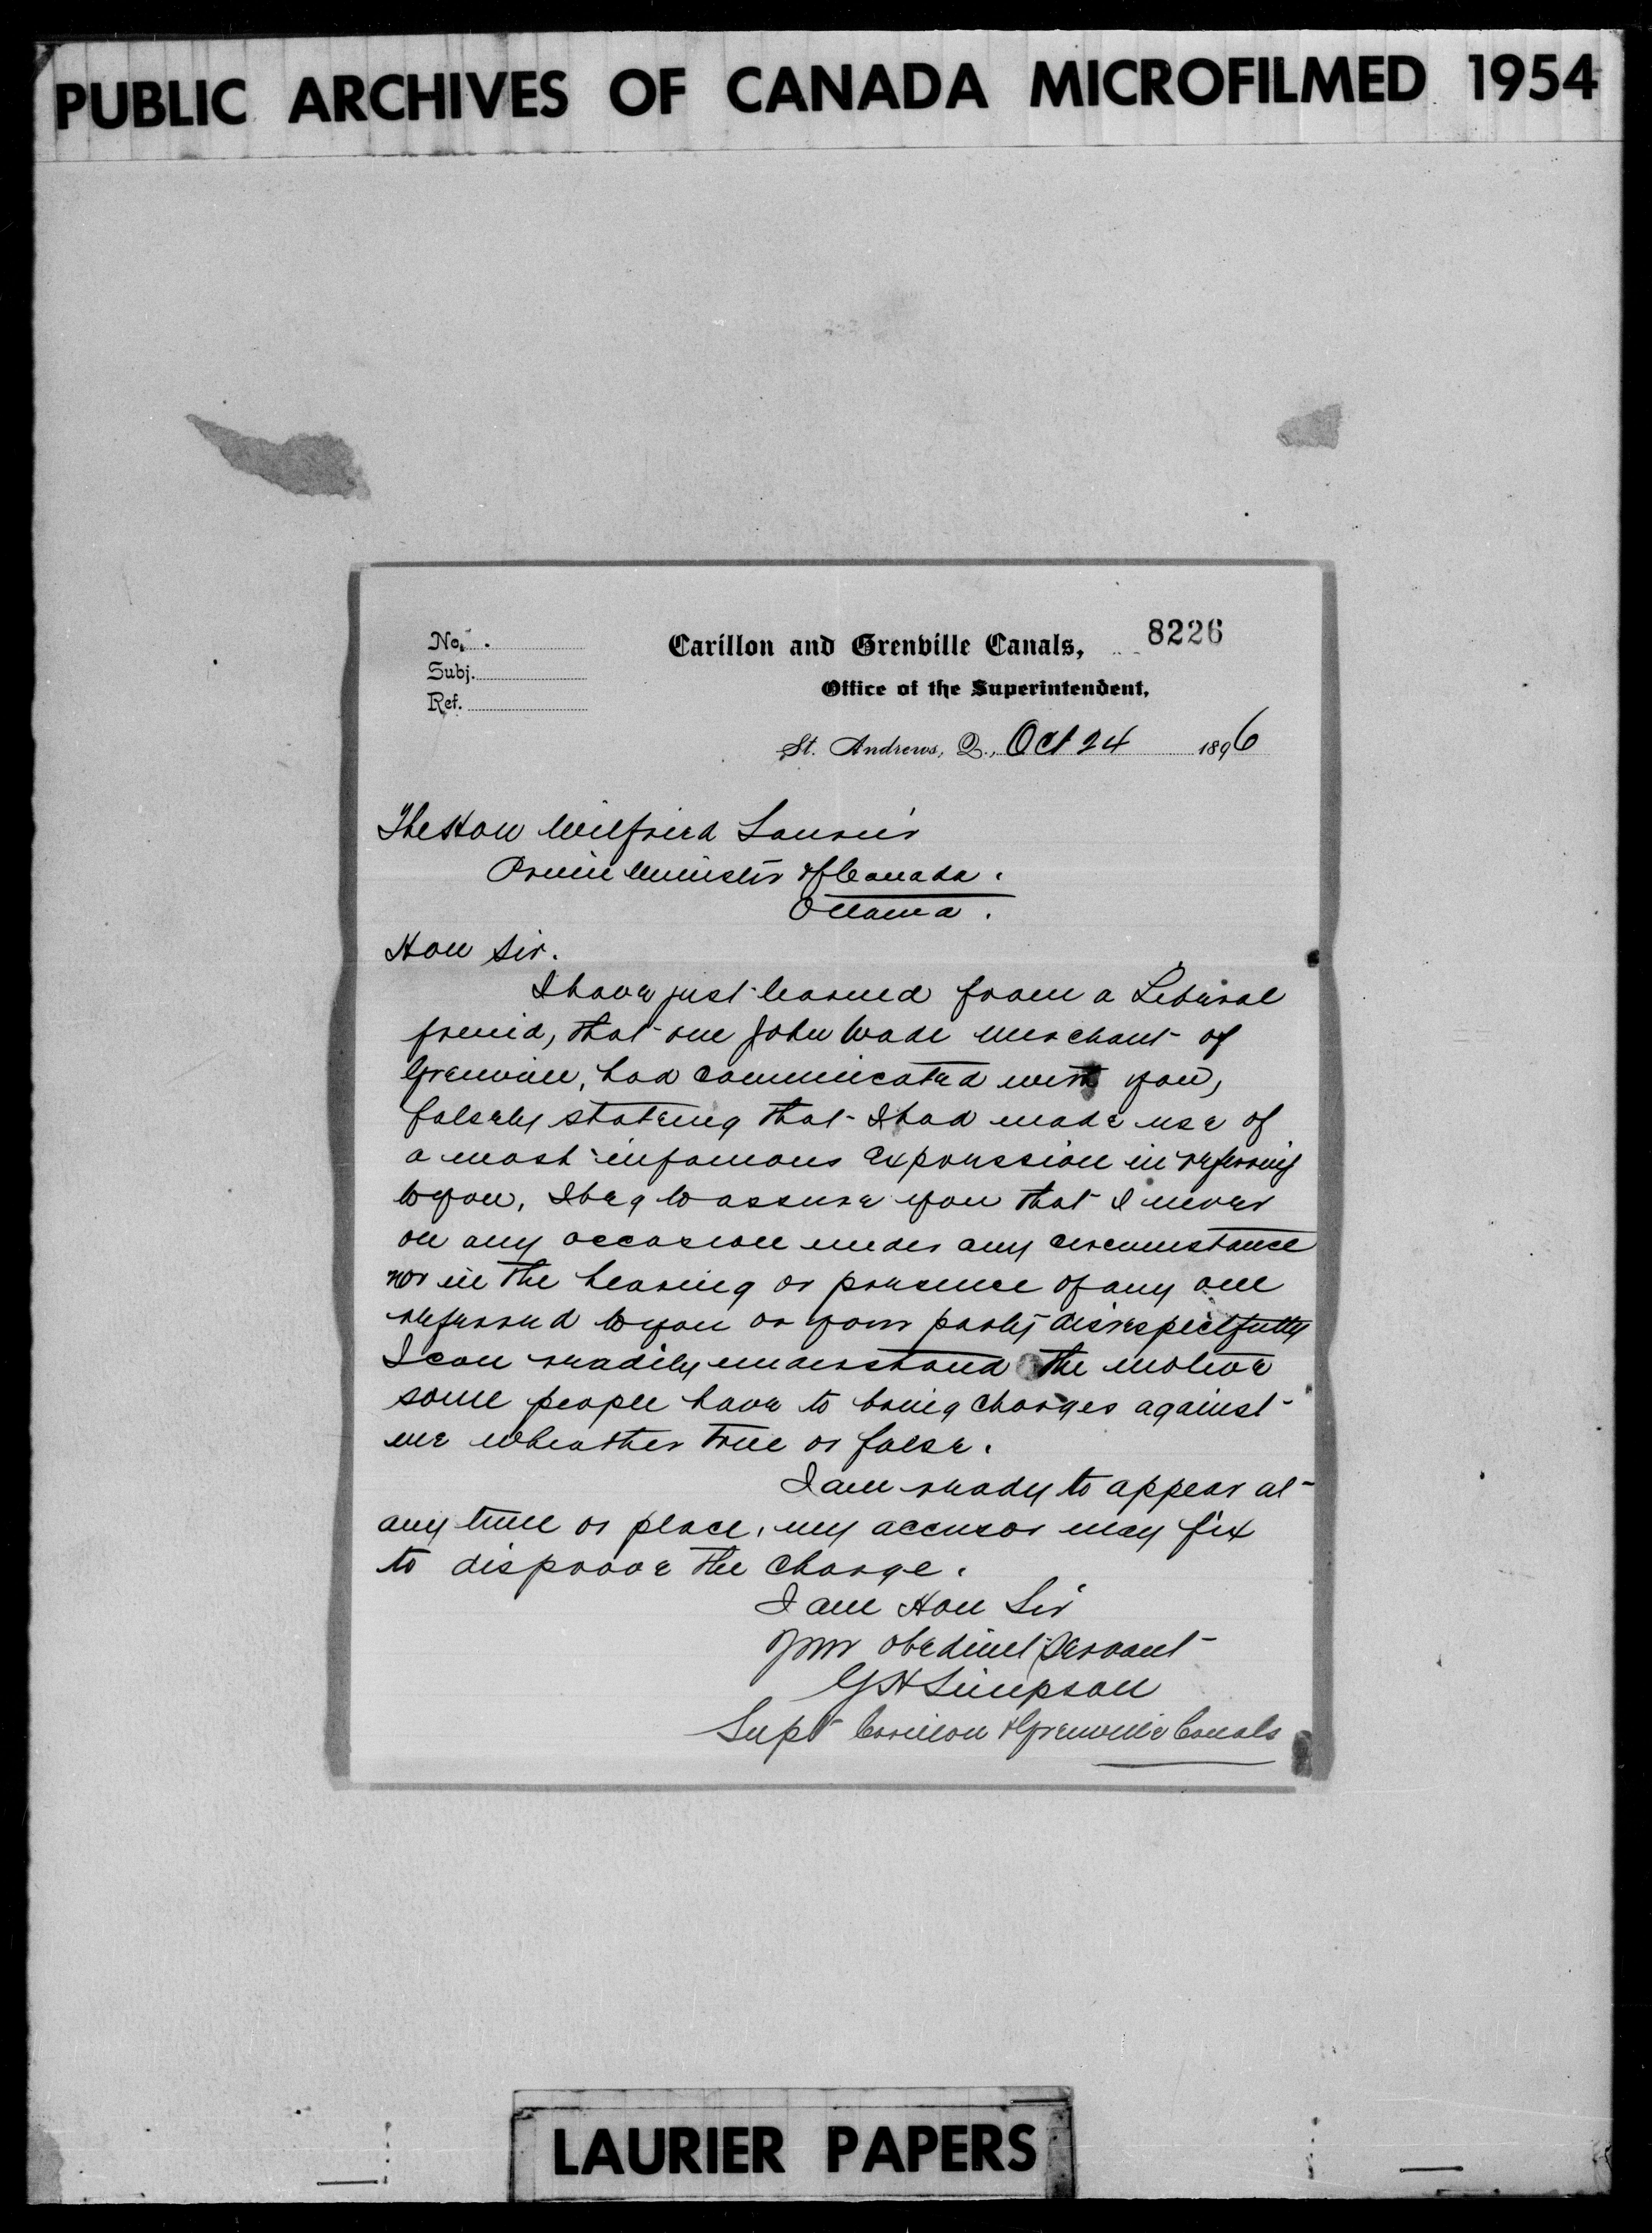 PUBLIC ARCHIVES OF CANADA MICROFILMED 1954
8226
No.
Carillon and Grenville Canals,
Subj.
Office of the Superintendent,
Ref.
St. Andrews, Q., Oct 24 1896
The Hon Wilfried Laurier
Prime Minister of Canada.
Ottawa.
Hon Sir.
I have just learned from a Liberal
friend, that one John Wade merchant of
Grenville, had communicated with you,
falsely stating that I had made use of
a most infamous expression in referring
to you, I beg to assure you that I never
on any occasion under any circumstance
nor in the hearing or presence of any one
referred to you or your party disrespectfully
I can readily understand the motive
some people have to bring charges against
me wheather true or false.
I am ready to appear at
any time or place, my accusor may fix
to disproove the charge.
I am Hon Sir
your obedient servant
G H Simpson
Supt Carillon & Grenville Canals
LAURIER PAPERS